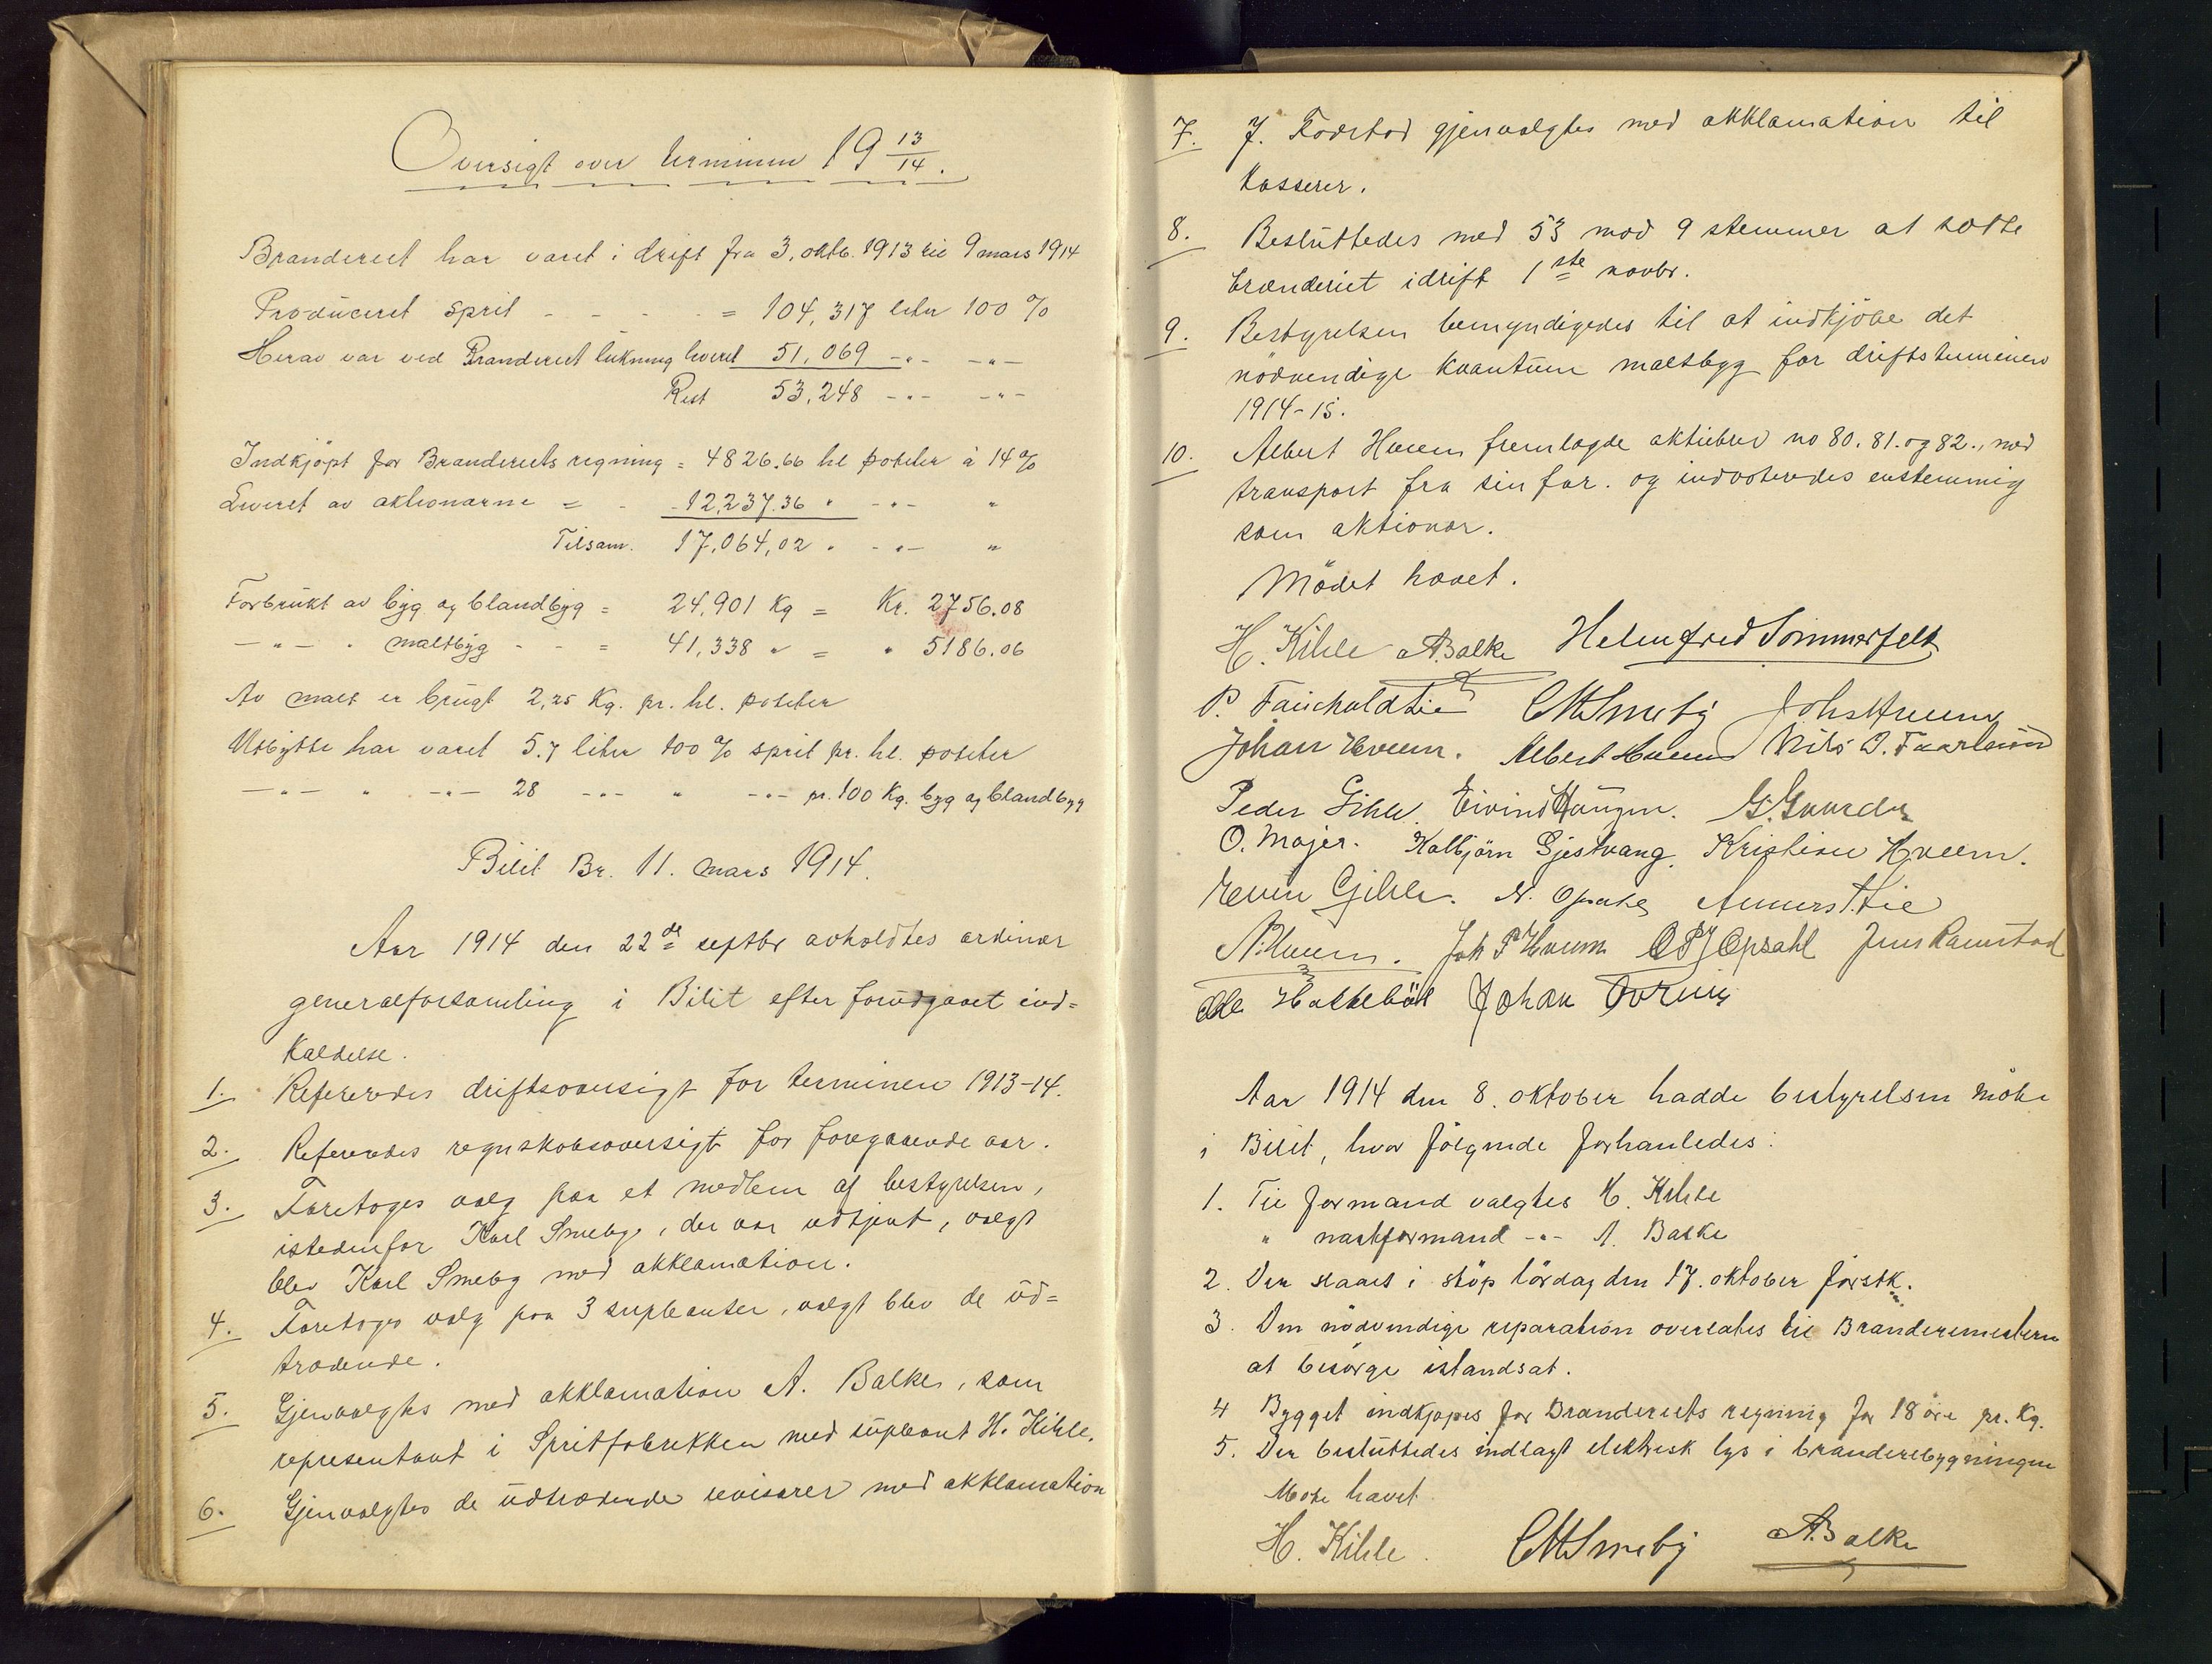 Oversigt over terminen 19 13/14.
Branderiet har varet i drift fra 3. oktb. 1913 til 9 mars 1914
Produceret sprit - - - - = 104,317 liter 100 %
Herav var ved Branderiet lukning leveret 51,069 -"- -"-
Rest 53,248 -"- -"-
Indkjöpt for Branderiets regning = 4826.66 hl poteter à 14 %
Leveret av aktionarne = - - 12,237.36 " -"- "
Tilsam. 17,064,02 " -"- "
Forbrukt av byg og blandbyg = 24,901 Kg = Kr. 2756.08
-"- " maltbyg - - = 41,338 " = " 5186.06
Av malt er brugt 2,25 Kg. pr. hl. poteter
Utbytte har varet 5.7 liter 100 % sprit pr. hl. poteter
-"- " -"- 28 -"- " -"- pr. 100 Kg. byg og blandbyg
Bilit Br. 11. mars 1914.
Aar 1914 den 22de septbr avholdtes ordinær
generalforsamling i Bilit efter forudgaaet ind=
kaldelse.
1. Refereredes driftsoversigt for terminen 1913-14.
2. Refereredes regnskabsoversigt for foregaaende aar.
3. Foretoges valg paa et medlem af bestyrelsen,
istedenfor Karl Smeby, der var udtjent, valgt
blev Karl Smeby med akklamation.
4. Foretoges valg paa 3 supleanter, valgt blev de ud=
trædende.
5. Gjenvalgtes med akklamation A. Balke, som
representant i Spritfabrikken med supleant H. Kihle.
6. Gjenvalgtes de udtrædende revisorer med akklamation
7. J. Fodstad gjenvalgtes med akklamation til
kasserer.
8. Besluttedes med 53 mod 9 stemmer at sætte
brænderiet idrift 1ste novbr.
9. Bestyrelsen bemyndigedes til at indkjöbe det
nödvendige kvantum maltbyg for driftsterminen
1914-15.
10. Albert Hveem fremlagde aktiebrev no 80. 81. og 82., med
transport fra sin far. og indvoteredes enstemmig
som aktionær.
Mödet hævet.
H. Kihle A. Balke Helmfred Sommerfelt
P. Fauchaldlie CM Smeby Johs Hveem
Johan Hveem. Albert Hveem Nils O. Faarlund
Peder Gihle. Eivind Haugen. G. Gaarder
O. Majer. Kolbjörn Gjestvang. Kristian Hveem.
Even Gihle. N. Opsahl Anners Lie
N. Hveem. Joh P Hveem O P Opsahl Jens Ramstad
Ole Hakkeböl Johan
Aar 1914 den 8. oktober hadde bestyrelsen möte
i Bilit, hvor fölgende forhanledes:
1. Til formand valgtes H. Kihle
" nastformand -"- A. Balke
2. Der slaaes i stöp lördag den 17. oktober förstk.
3. Den nödvendige reparation overlates til Branderimesteren
at besörge istandsat.
4 Bygget indkjøpes for Branderiets regning for 18 öre pr. Kg.
5. Der besluttedes indlagt elektrisk lys i branderibygningen
Møte havet
H. Kihle. CM Smeby A. Balke